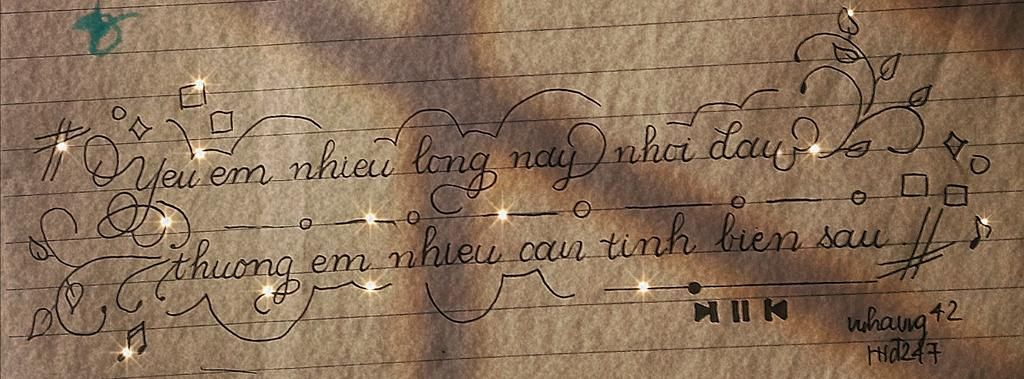 Yeu em nhieu long nay nhoi dau
thuong em nhieu can tinh bien sau
nhawg 42
Hd247